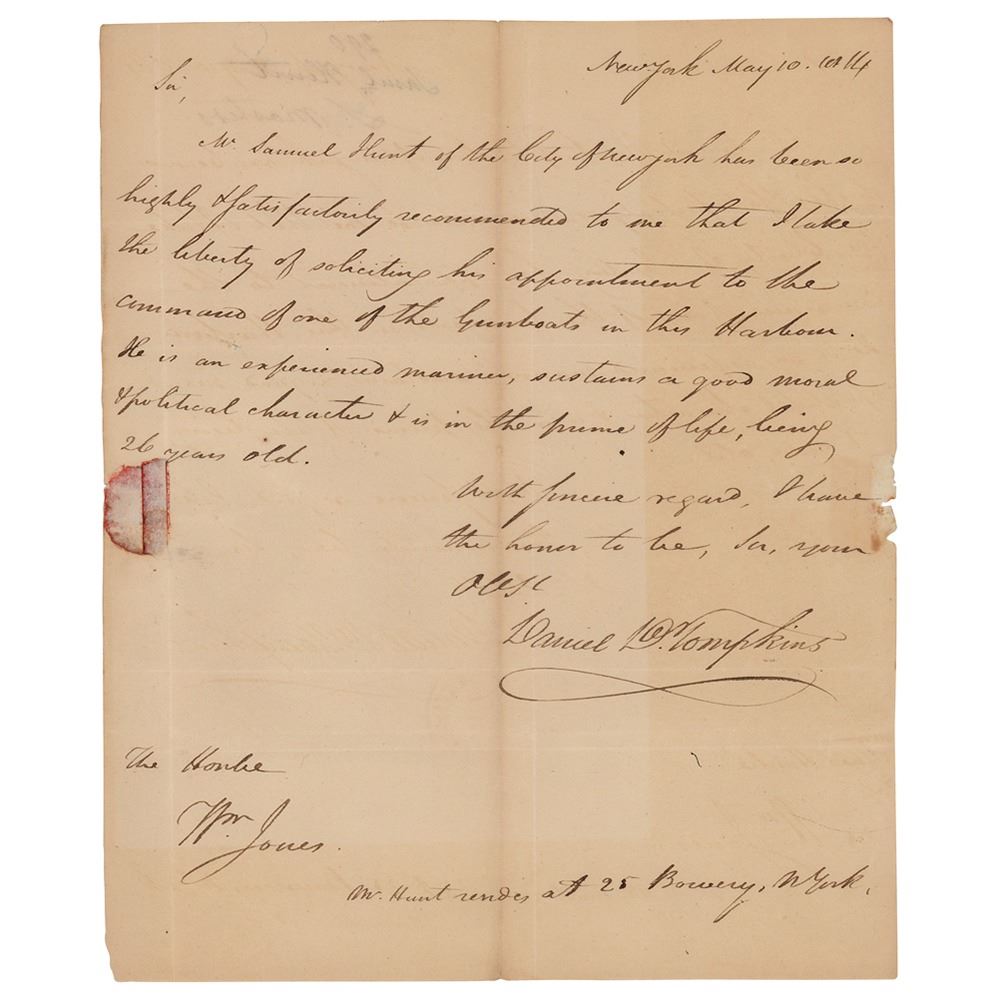 New York May 10. 1814
Sir,
Mr. Samuel Hunt of the City of New york has been so
highly & satisfactorily recommended to me that I take
the liberty of soliciting his appointment to the
command of one of the Gunboats in this Harbour.
He is an experienced mariner, sustains a good moral
& political character & is in the prime of life, being
26 years old.
With sincere regard, I have
the honor to be, Sir, your
Obst
Daniel D. Tompkins
The Honble
Wm Jones.
Mr. Hunt resides at 25 Bowery, N York.